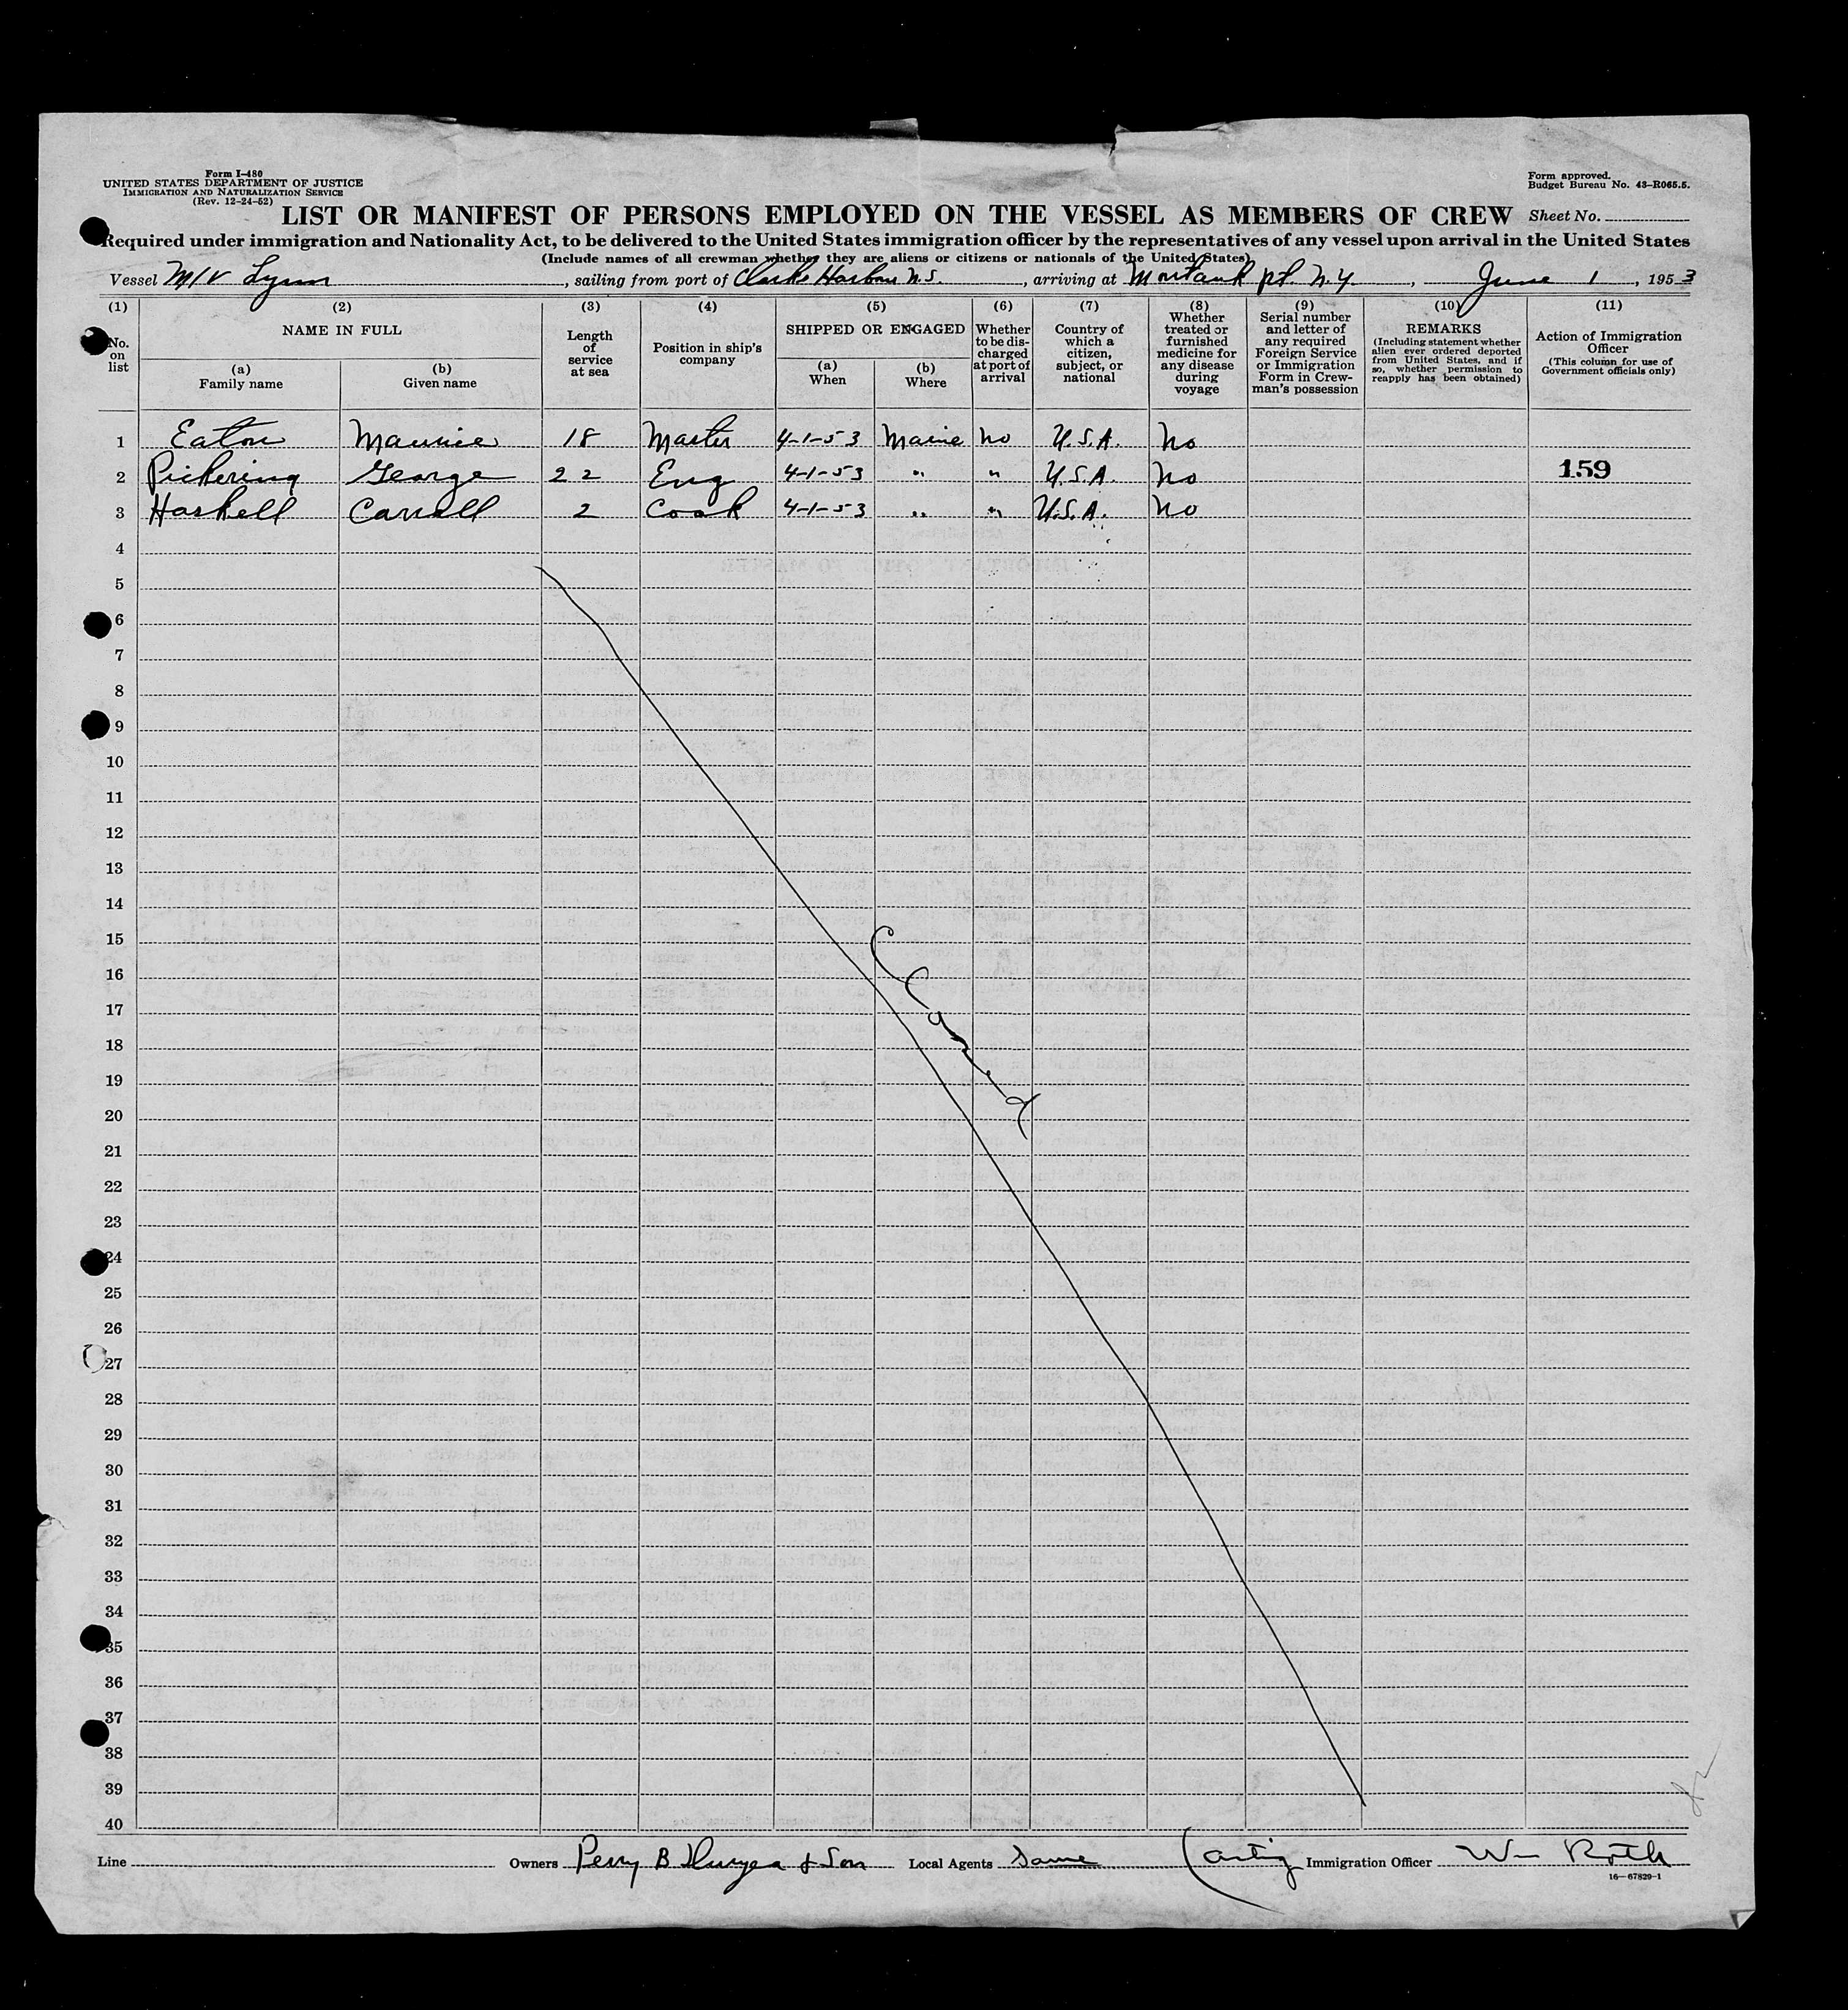 Form I-480
UNITED STATES DEPARTMENT OF JUSTICE
IMMIGRATION AND NATURALIZATION SERVICE
(Rev. 12-24-52)
Form approved.
Budget Bureau No. 43-R065.5.
LIST OR MANIFEST OF PERSONS EMPLOYED ON THE VESSEL AS MEMBERS OF CREW Sheet No.
Required under immigration and Nationality Act, to be delivered to the United States immigration officer by the representatives of any vessel upon arrival in the United States
(Include names of all crewman whether they are aliens or citizens or nationals of the United States)
Vessel M/V Lynn, sailing from port of Clarks Harbour N.S., arriving at Montauk pt. N.Y., June 1, 1953
(1) (2) (3) (4) (5) (6) (7) (8) (9) (10) (11)
No. on list
NAME IN FULL
(a) Family name
(b) Given name
Length of service at sea
Position in ship's company
SHIPPED OR ENGAGED
(a) When
(b) Where
Whether to be discharged at port of arrival
Country of which a citizen, subject, or national
Whether treated or furnished medicine for any disease during voyage
Serial number and letter of any required Foreign Service or Immigration Form in Crewman's possession
REMARKS
(Including statement whether alien ever ordered deported from United States, and if so, whether permission to reapply has been obtained)
Action of Immigration Officer
(This column for use of Government officials only)
1 Eaton Maurice 18 Master 4-1-53 Maine no U.S.A. No
2 Pickering George 22 Eng 4-1-53 " " U.S.A. No 159
3 Haskell Carroll 2 Cook 4-1-53 " " U.S.A. No
4
5
6
7
8
9
10
11
12
13
14
15
16
17
18
19
20
21
22
23
24
25
26
27
28
29
30
31
32
33
34
35
36
37
38
39
40
Line Owners Perry B Duryea & Son Local Agents Same (Acting Immigration Officer Wm Roth
16-67829-1